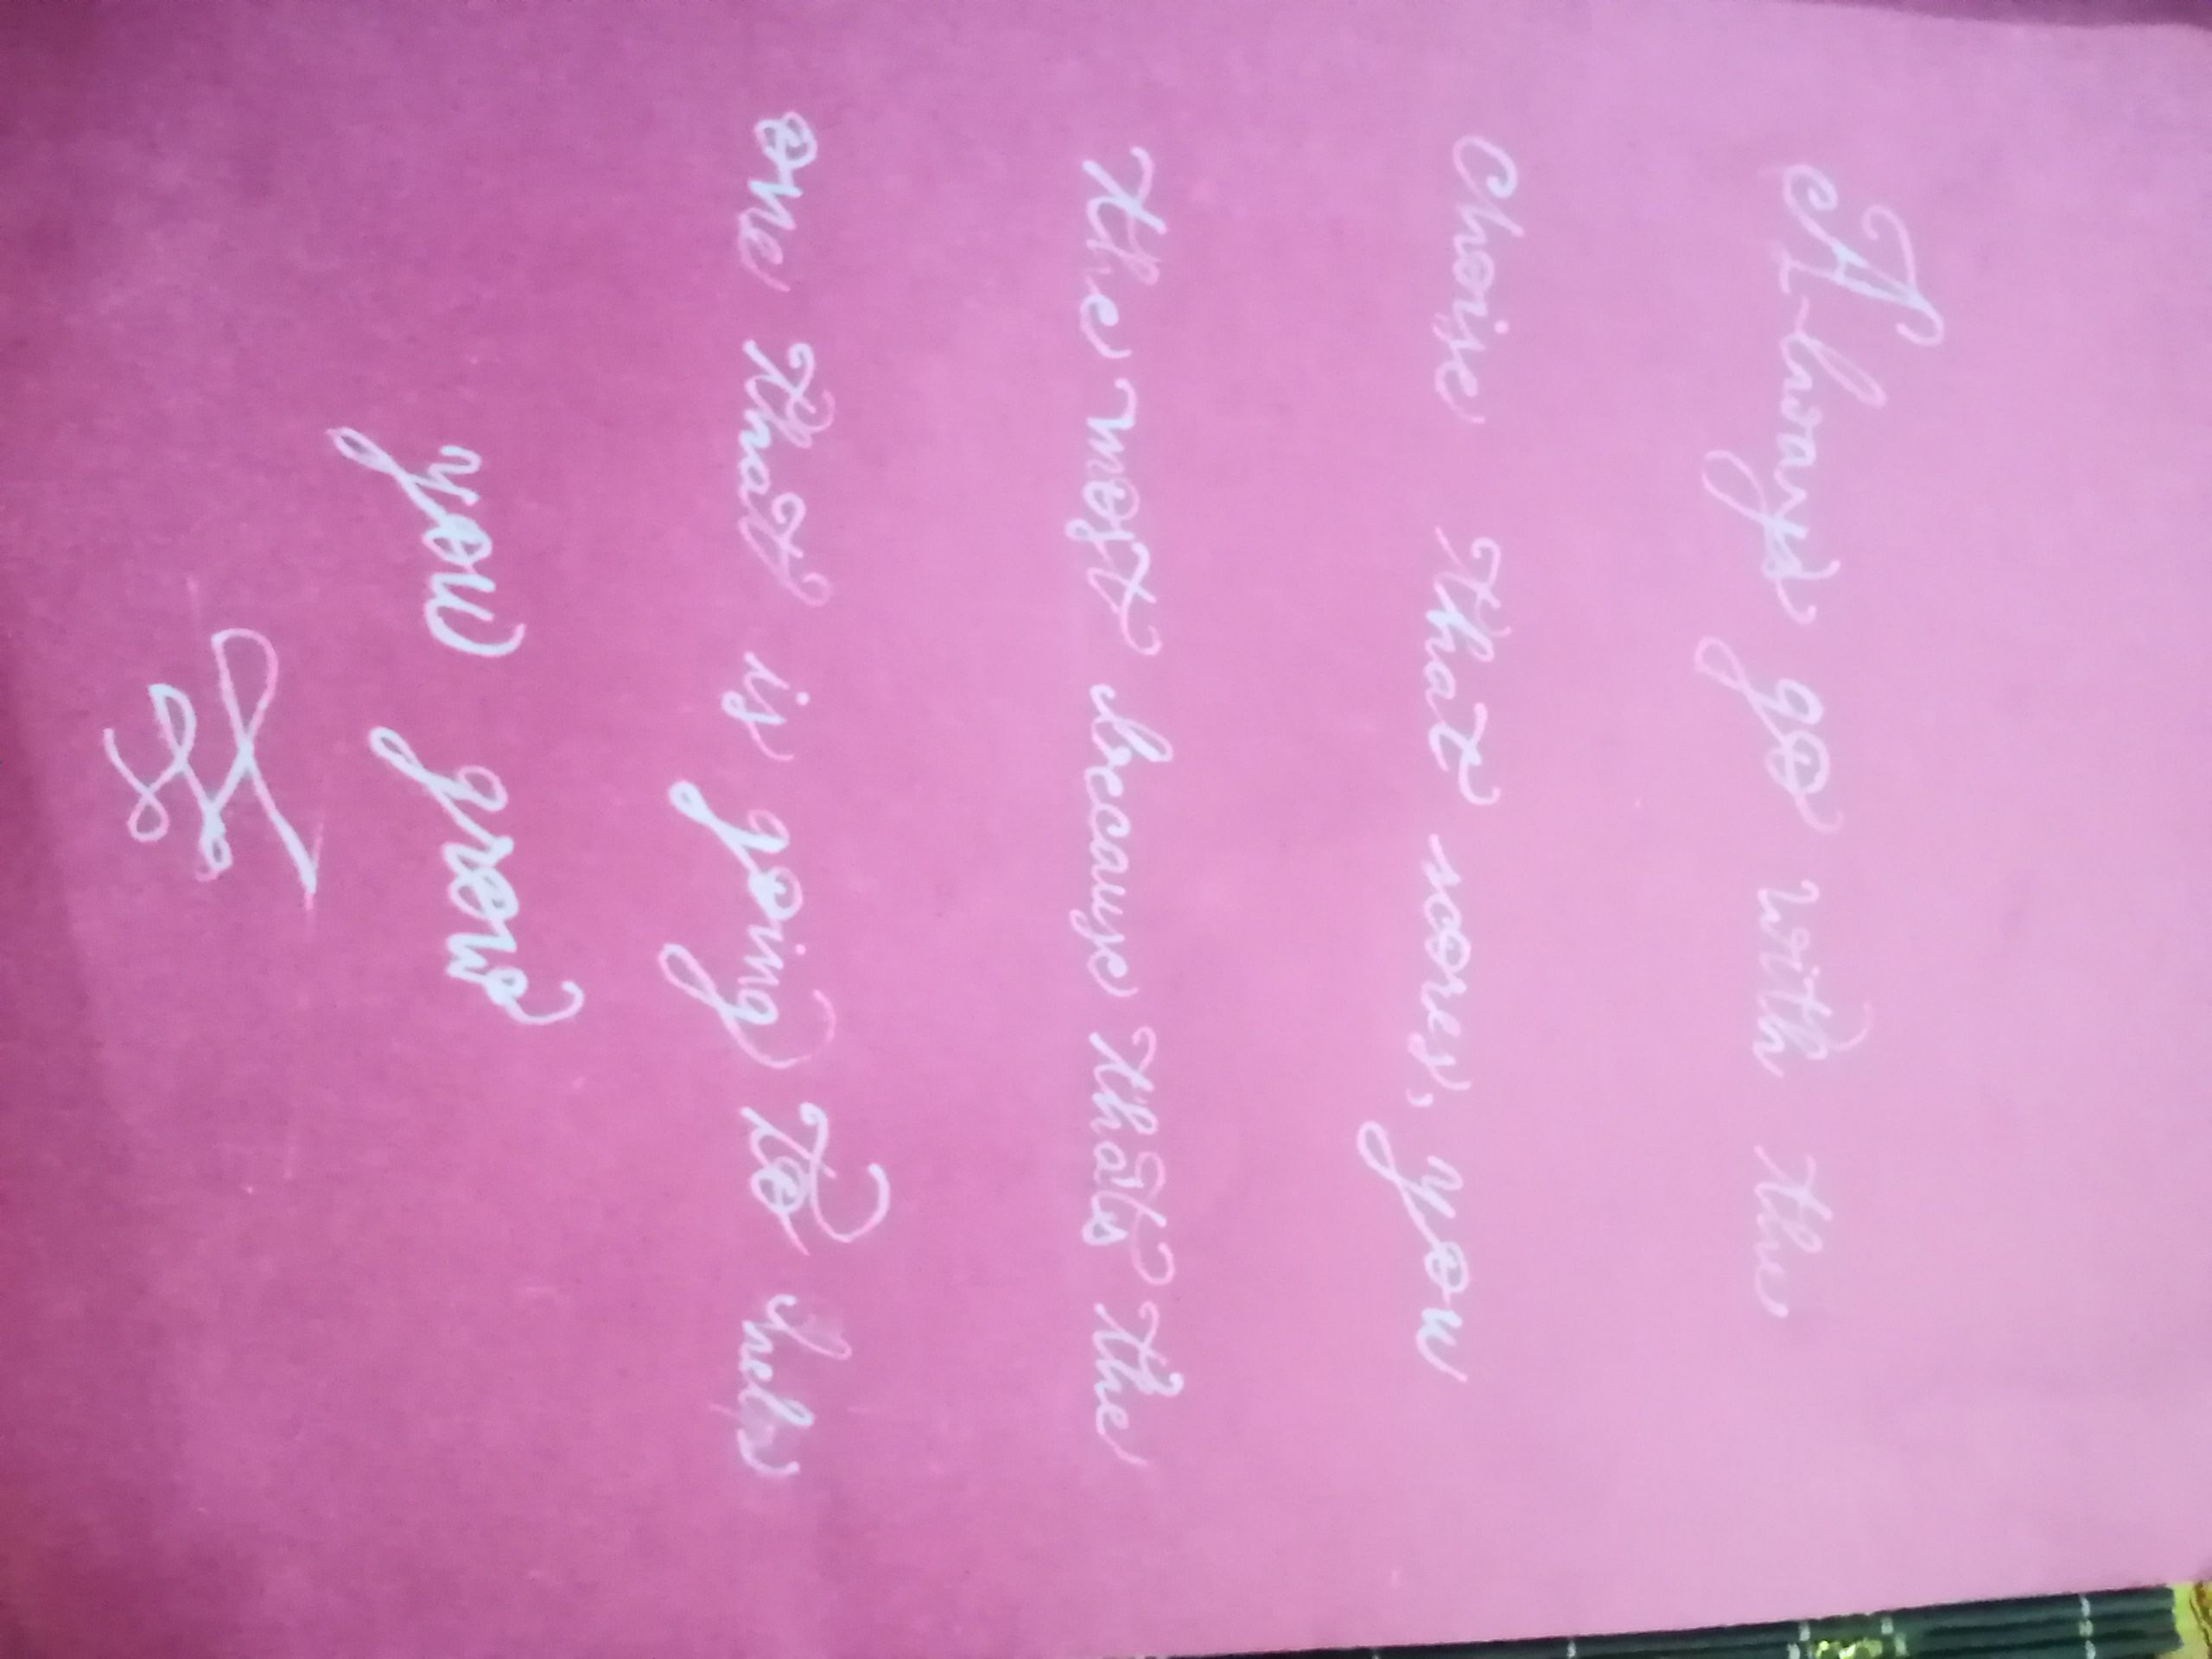 Always go with the
choise that scores, you
the most because thats the
one that is going to help
you grow